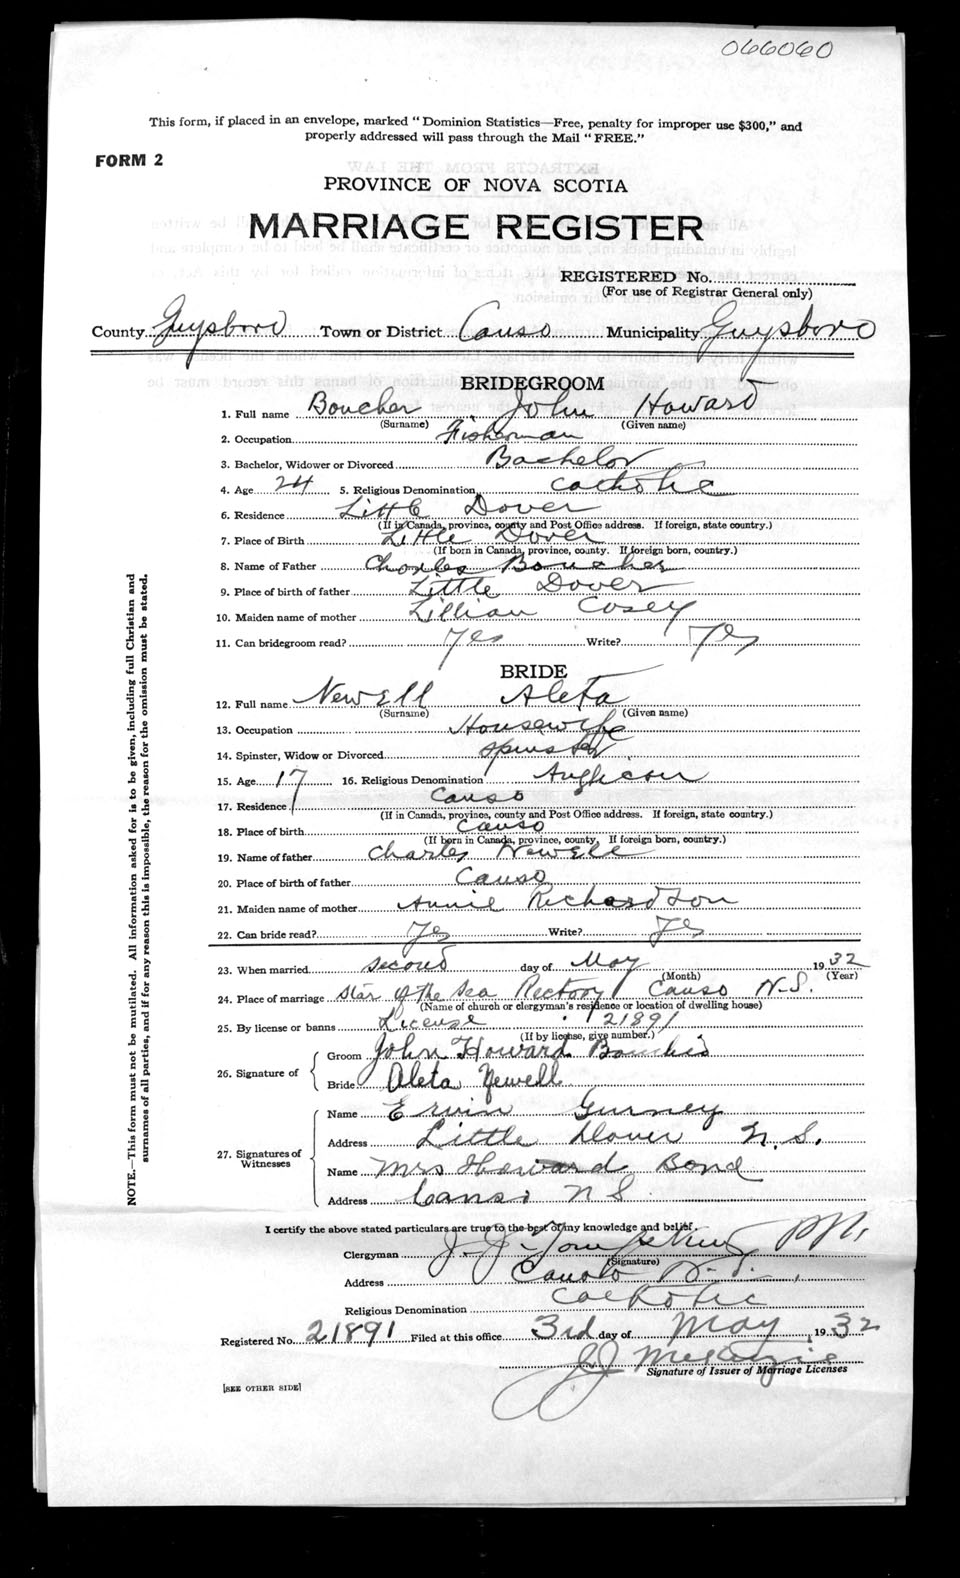 066060
This form, if placed in an envelope, marked " Dominion Statistics—Free, penalty for improper use $300," and
properly addressed will pass through the Mail " FREE."
FORM 2
PROVINCE OF NOVA SCOTIA
MARRIAGE REGISTER
REGISTERED No.
(For use of Registrar General only)
County Guysboro Town or District Canso Municipality Guysboro
BRIDEGROOM
1. Full name Boucher John Howard
(Surname) (Given name)
2. Occupation Fisherman
3. Bachelor, Widower or Divorced Bachelor
4. Age 24 5. Religious Denomination Catholic
6. Residence Little Dover
(If in Canada, province, county and Post Office address. If foreign, state country.)
7. Place of Birth Little Dover
(If born in Canada, province, county. If foreign born, country.)
8. Name of Father Charles Boucher
9. Place of birth of father Little Dover
10. Maiden name of mother Lillian Cosey
11. Can bridegroom read? Yes Write? Yes
BRIDE
12. Full name Newell Aleta
(Surname) (Given name)
13. Occupation Housewife
14. Spinster, Widow or Divorced Spinster
15. Age 17 16. Religious Denomination Anglican
17. Residence Canso
(If in Canada, province, county and Post Office address. If foreign, state country.)
18. Place of birth Canso
(If born in Canada, province, county, If foreign born, country.)
19. Name of father Charles Newell
20. Place of birth of father Canso
21. Maiden name of mother Annie Richardson
22. Can bride read? Yes Write? Yes
23. When married second day of May 1932
(Month) (Year)
24. Place of marriage Star of the Sea Rectory Canso N.S.
(Name of church or clergyman's residence or location of dwelling house)
25. By license or banns License 21891
(If by license, give number.)
26. Signature of
Groom John Howard Bouchie
Bride Aleta Newell
27. Signatures of Witnesses
Name Ervin Gurney
Address Little Dover N.S.
Name Mrs Howard Bond
Address Canso N S
I certify the above stated particulars are true to the best of my knowledge and belief.
Clergyman J. J. Tompkins P.P.
(Signature)
Address Canso N.S.
Religious Denomination Catholic
Registered No. 21891 Filed at this office 3rd day of May 1932
J J McKenzie
Signature of Issuer of Marriage Licenses
[SEE OTHER SIDE]
NOTE.—This form must not be mutilated. All information asked for is to be given, including full Christian and
surnames of all parties, and if for any reason this is impossible, the reason for the omission must be stated.